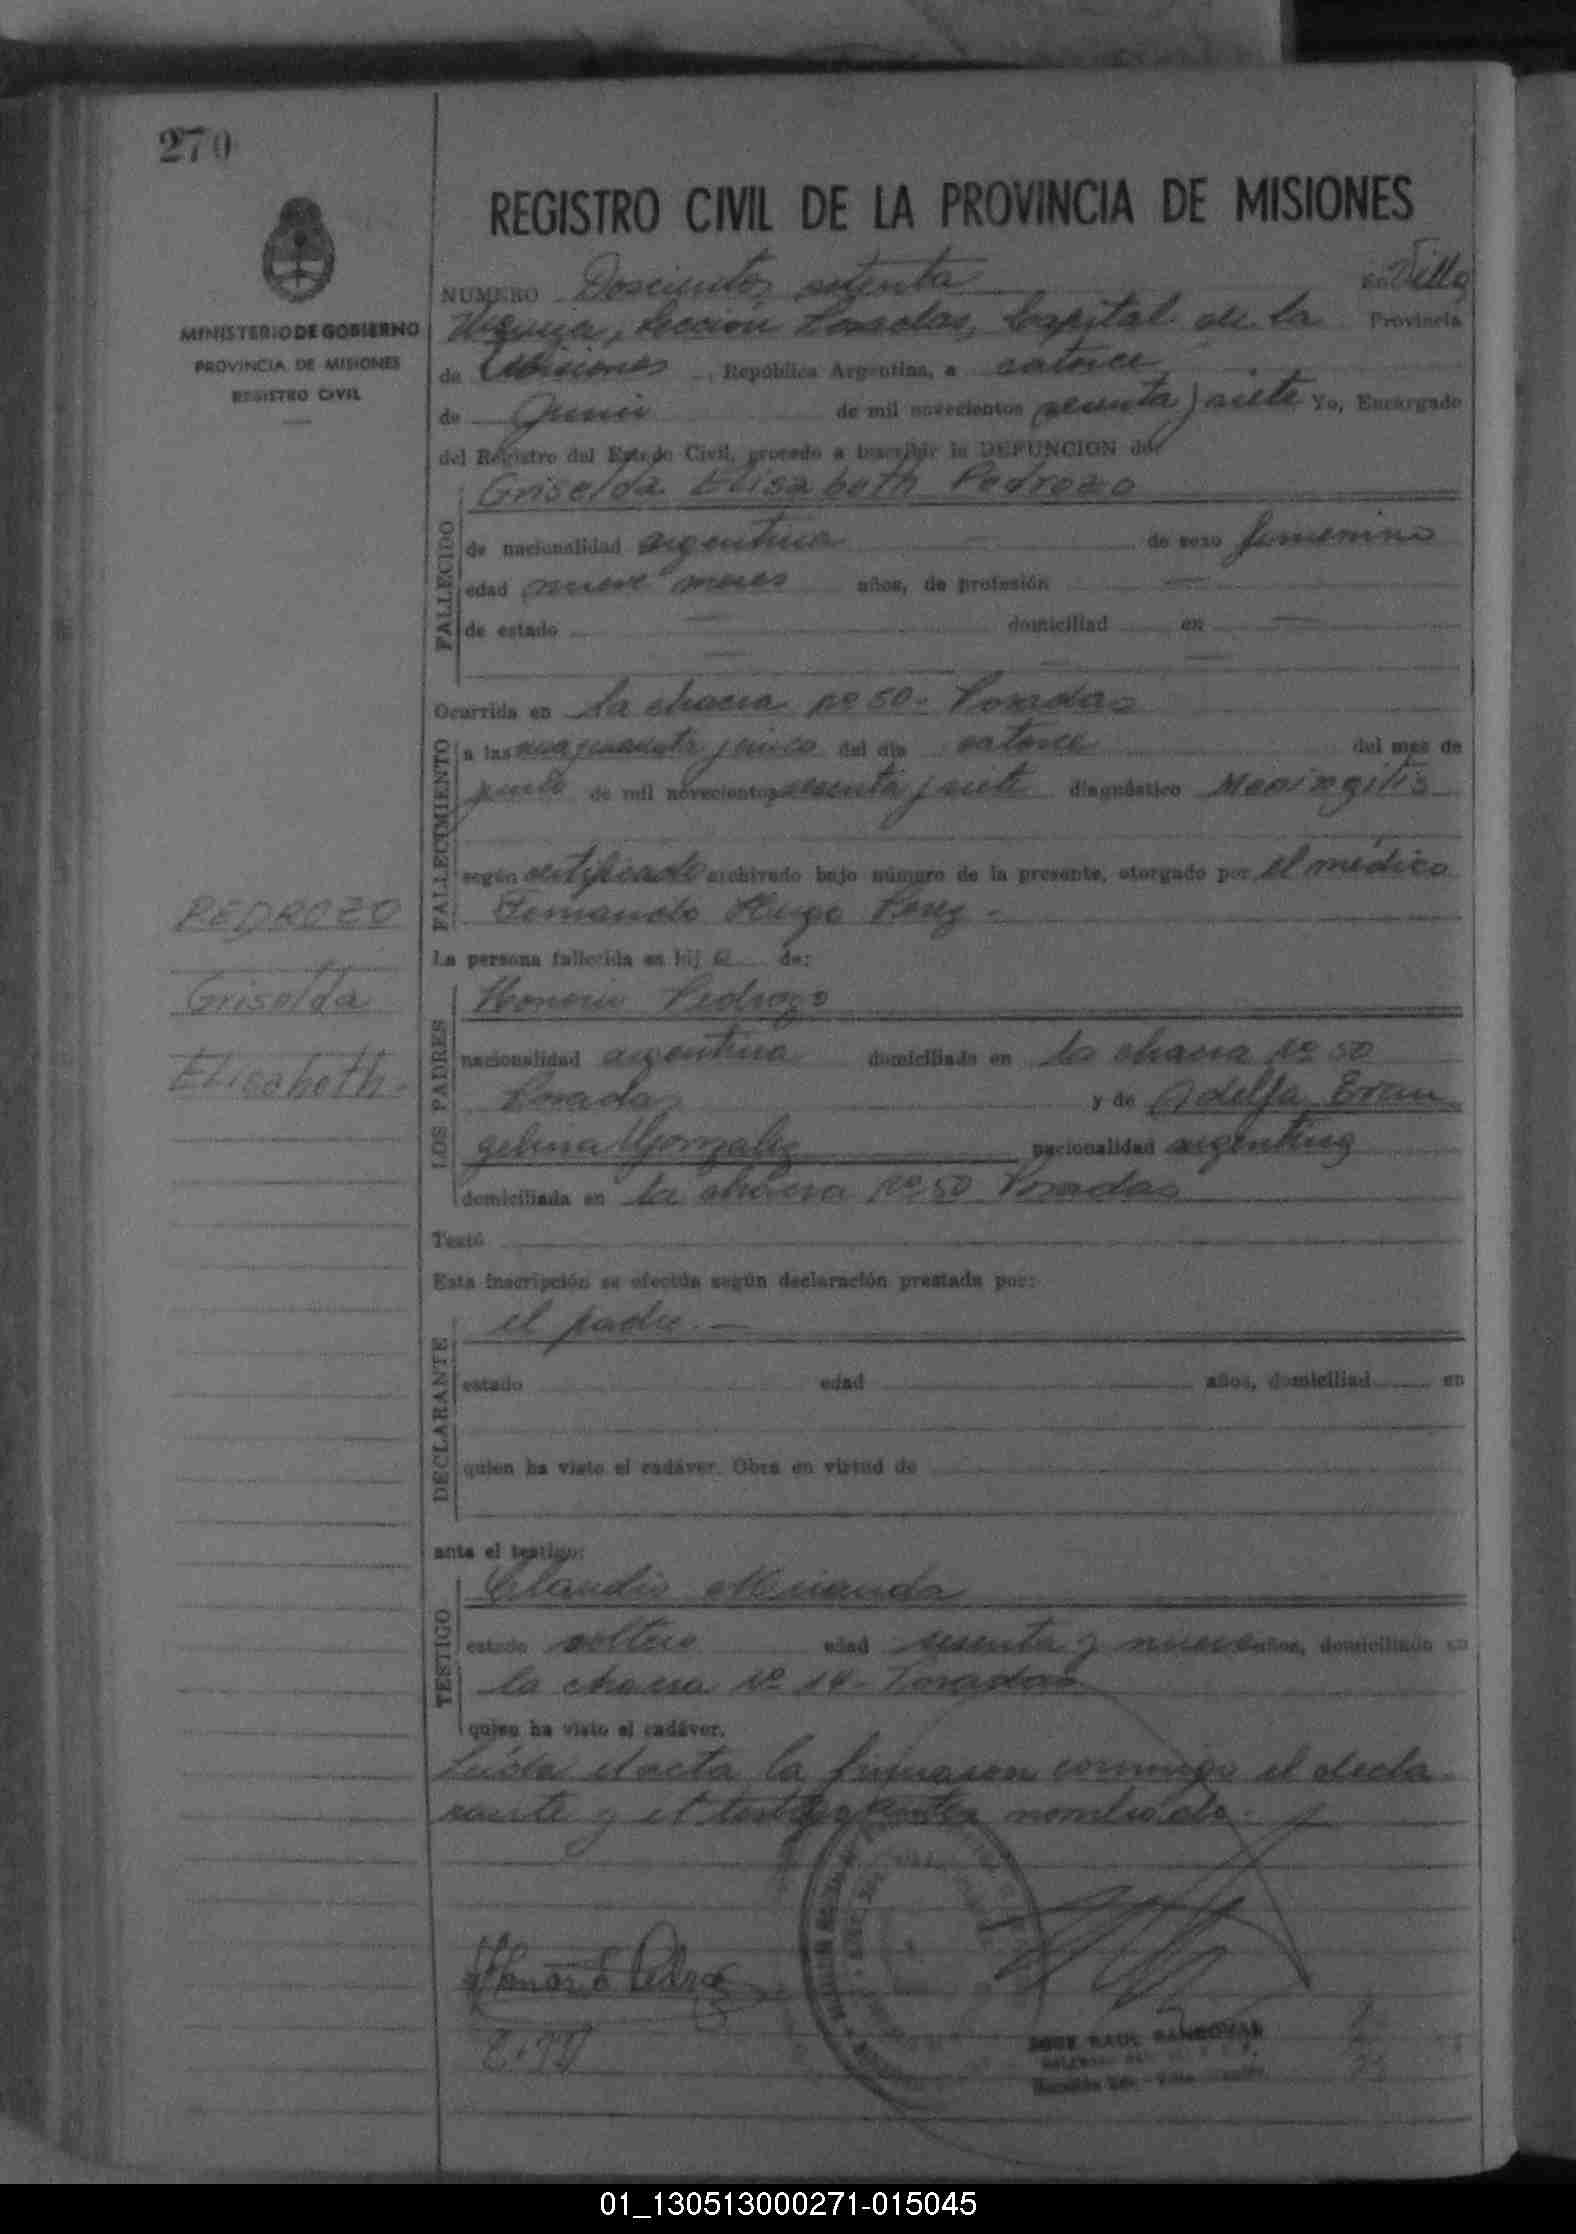 270
REGISTRO CIVIL DE LA PROVINCIA DE MISIONES
MINISTERIO DE GOBIERNO
PROVINCIA DE MISIONES
REGISTRO CIVIL
NUMERO Doscientos setenta en Villa
Urquiza, Sección Posadas, Capital de la Provincia
de Misiones, República Argentina, a catorce
de Junio de mil novecientos sesenta y siete Yo, Encargado
del Registro del Estado Civil, procedo a inscribir la DEFUNCION de:
Griselda Elisabeth Pedrozo
FALLECIDO
de nacionalidad argentina de sexo femenino
edad nueve meses años, de profesión —
de estado — domiciliad en —
Ocurrida en la chacra nº 50 - Posadas
FALLECIMIENTO
a las cuarenta y cinco del día catorce del mes de
junio de mil novecientos sesenta y siete diagnóstico Meningitis
según certificado archivado bajo número de la presente, otorgado por el médico
Fernando Hugo Perez -
PEDROZO
Griselda
Elisabeth.
La persona fallecida es hija de:
LOS PADRES
Honorio Pedrozo
nacionalidad argentina domiciliado en la chacra Nº 50
Posadas y de Adelfa Evan
gelina Gonzalez nacionalidad argentina
domiciliada en la chacra Nº 50 Posadas
Testó
Esta inscripción se efectúa según declaración prestada por:
DECLARANTE
el padre. —
estado edad años, domiciliad en
quien ha visto el cadáver. Obra en virtud de
ante el testigo:
TESTIGO
Claudio Miranda
estado soltero edad sesenta y nueve años, domiciliado en
la chacra Nº 14 - Posadas
quien ha visto el cadáver.
Leída el acta la firmaron conmigo el decla
rante y el testigo antes nombrado.
Honorio Pedrozo
JOSE RAUL SANDOVAL
01_130513000271-015045